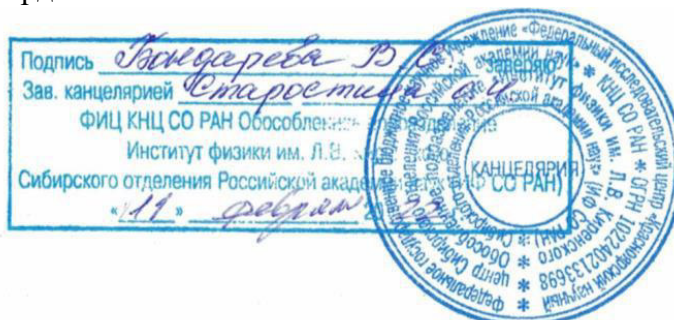 Подпись Бондарева В.С. заверяю
Зав. канцелярией Старостина
ФИЦ КНЦ СО РАН Обособленное подразделение
Институт физики им. Л.В.
Сибирского отделения Российской академии наук (ИФ СО РАН)
«11» февраля
Федеральное государственное бюджетное научное учреждение «Федеральный исследовательский центр «Красноярский научный центр Сибирского отделения Российской академии наук» * КНЦ СО РАН * ОГРН 1022402133698 *
Обособленное подразделение «Институт физики им. Л.В. Киренского Сибирского отделения Российской академии наук» (ИФ СО РАН) *
КАНЦЕЛЯРИЯ